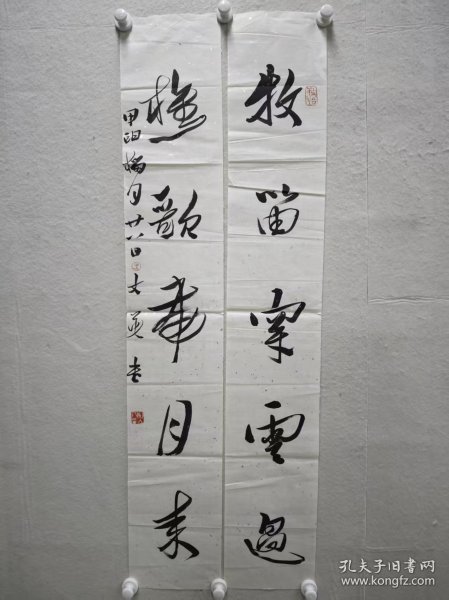 牧笛穿雲過
樵歌帶月來
廿八日
書
孔夫子旧书网
www.kongfz.com